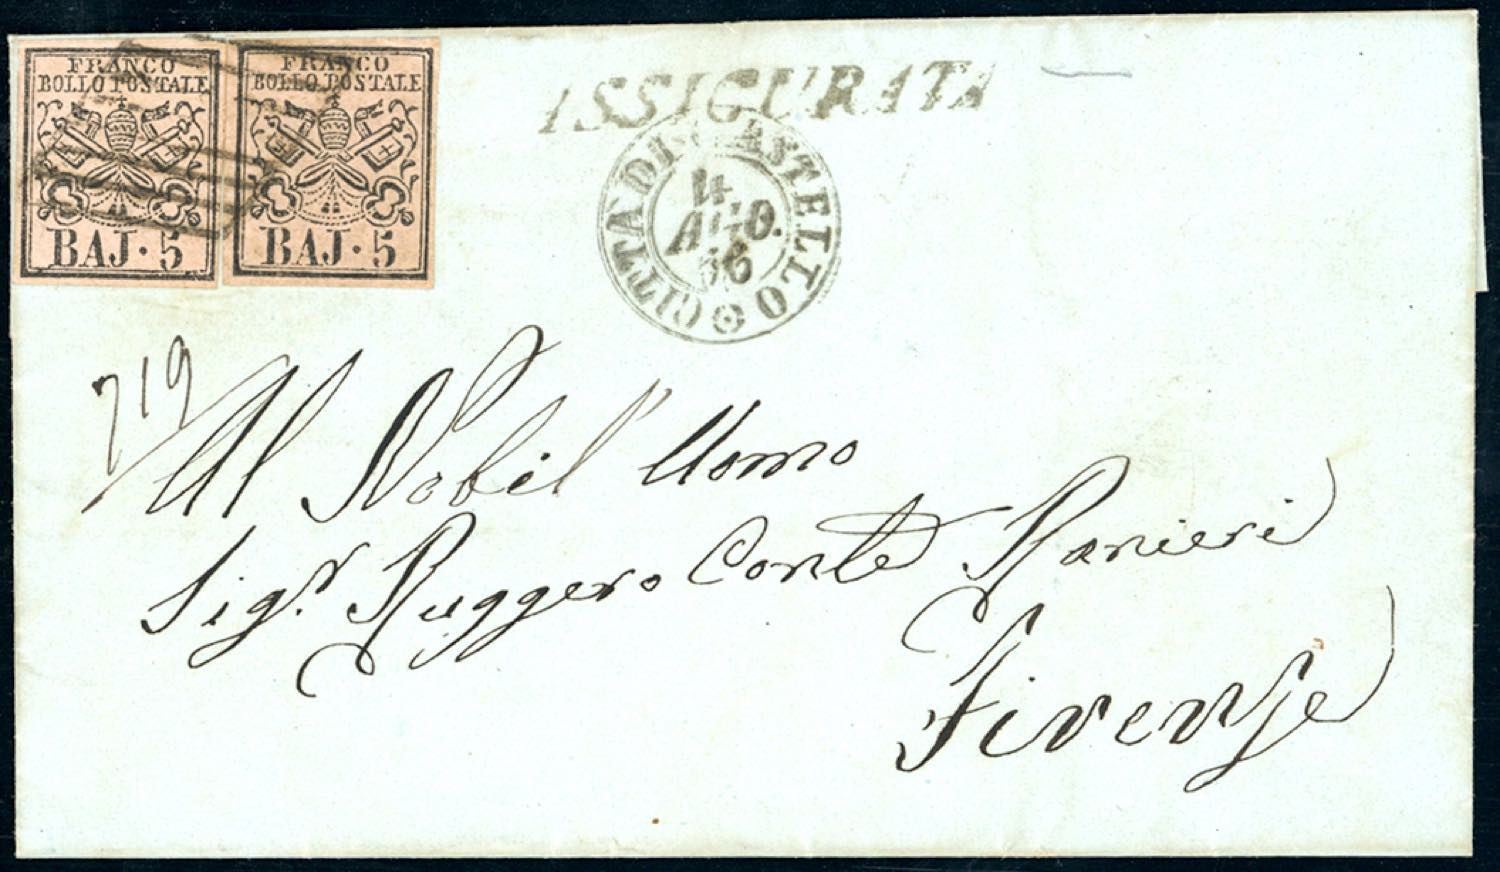 FRANCO
BOLLO POSTALE
BAJ · 5
FRANCO
BOLLO POSTALE
BAJ · 5
ASSIGURATA
CITTA DI CASTELLO
4
AGO.
56
719
Al Nobil' Uomo
Sigr. Ruggero Conte Ranieri
Firenze